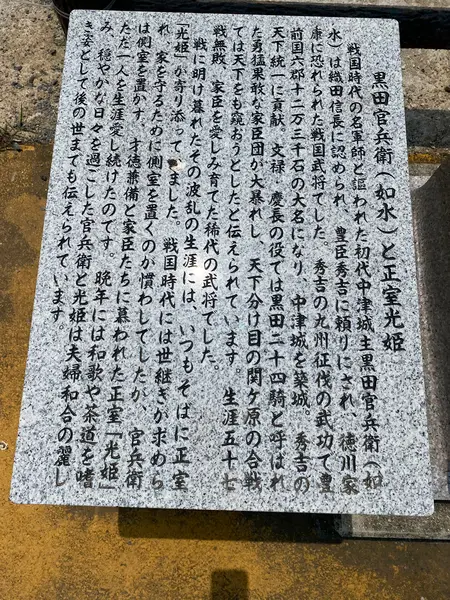 黒田官兵衛（如水）と正室光姫
戦国時代の名軍師と謳われた初代中津城主黒田官兵衛（如
水）は織田信長に認められ、豊臣秀吉に頼りにされ、徳川家
康に恐れられた戦国武将でした。秀吉の九州征伐の武功で豊
前国六郡十二万三千石の大名になり、中津城を築城。秀吉の
天下統一に貢献。文禄　慶長の役では黒田二十四騎と呼ばれ
た勇猛果敢な家臣団が大暴れし、天下分け目の関ケ原の合戦
では天下をも窺おうとしたと伝えられています。生涯五十七
戦無敗　家臣を愛しみ育てた稀代の武将でした。
戦に明け暮れたその波乱の生涯には、いつもそばに正室
「光姫」が寄り添って　ました。戦国時代には世継ぎが求めら
れ、家を守るために側室を置くのが慣わしでしたが、官兵衛
は側室を置かず、才徳兼備と家臣たちに慕われた正室「光姫」
ただ一人を生涯愛し続けたのです。晩年には和歌や茶道を嗜
み、穏やかな日々を過ごした官兵衛と光姫は夫婦和合の麗し
き姿として後の世までも伝えられています。